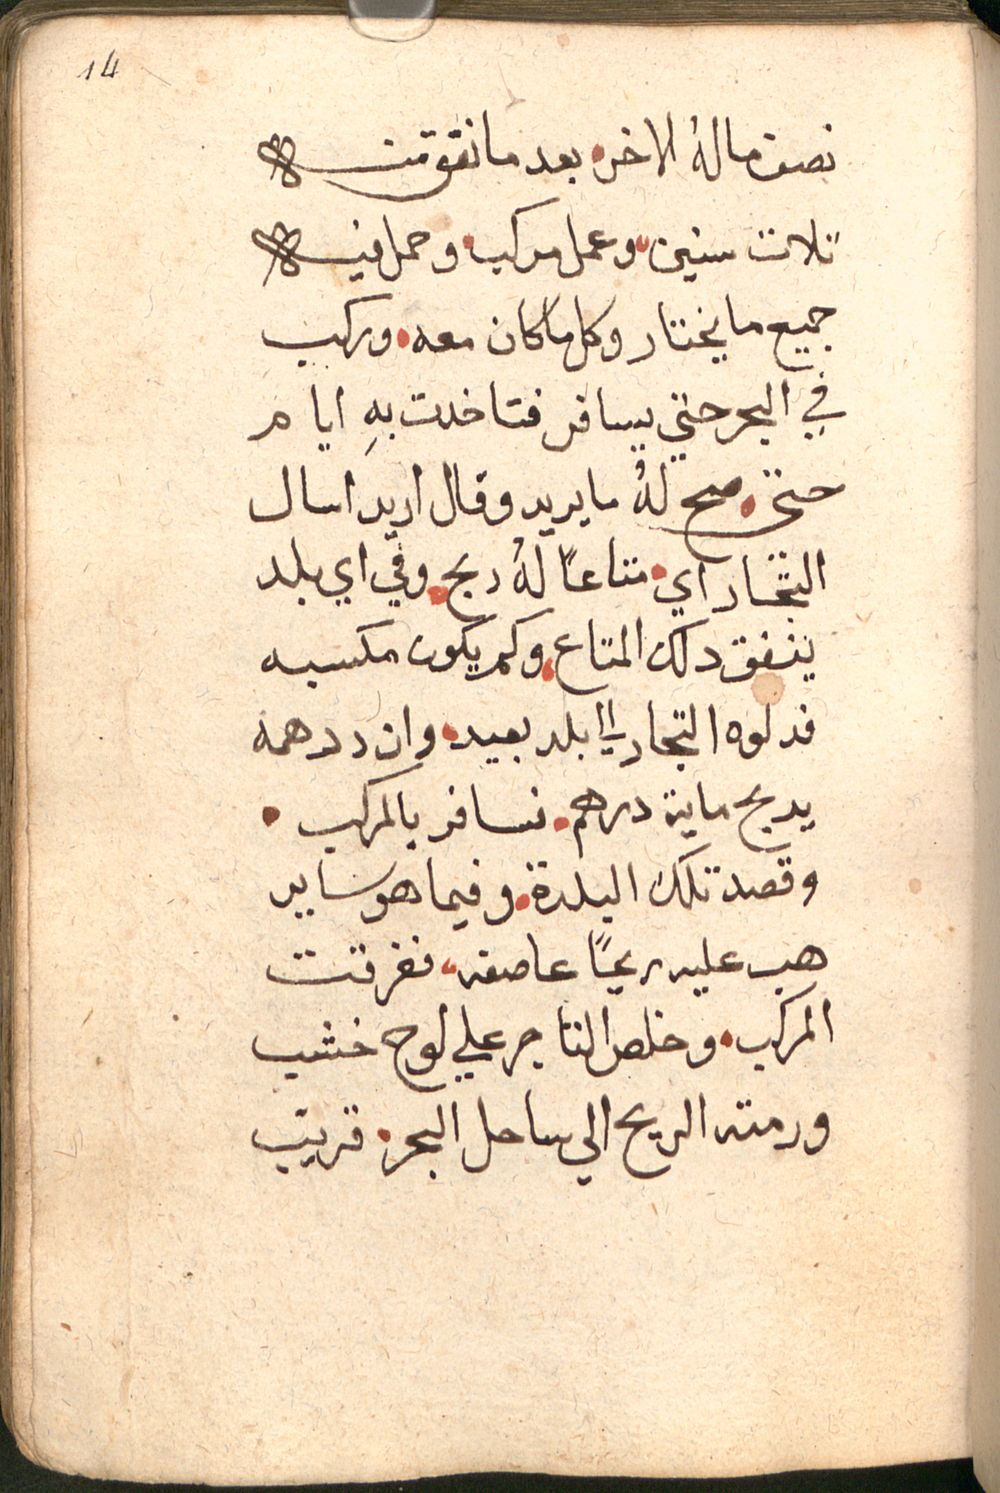 14
نصف ماله الاخر. بعد ما نقوقت
تلات سنين. وعمل مركب. وحمل فيه
جميع ما يختار وكل ما كان معه. وركب
في البحر حتي يسافر فتاخدت بهِ ايام
حتى. صح لهُ ما يريد وقال اريد اسال
التجار اي. متاعاً لهُ ربح. وفي اي بلد
ينفق دلك المتاع. وكم يكون مكسبه
فدلوه التجار الي بلد بعيد. وان ددهمه
يربح ماية درهم. فسافر بالمركب.
وقصد تلك البلدة. وفيما هو ساير
هب عليه ريحاً عاصفه. فغرقت
المركب. وخلص التاجر علي لوح خشب
ورمته الريح الي ساحل البحر. قريب